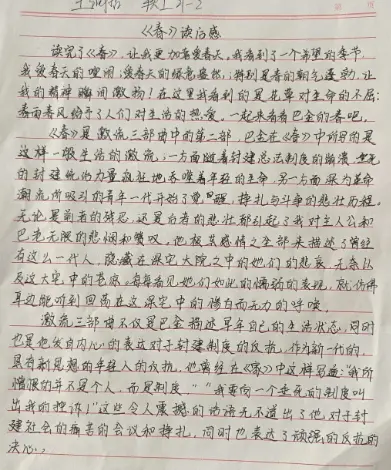 《春》读后感
读完了《春》,让我更加喜爱春天。我看到了一个希望的季节
我爱春天的喧闹;爱春天的绿意盎然;特别是春的朝气蓬勃,让
我的精神瞬间激扬!在这里我看到的是花草对生命的不屈;
春雨春风给予了人们对生活的热爱。一起来看看巴金的春吧。
《春》是激流三部曲中的第二部,巴金在《春》中所用的是
这样一股生活的激流,一方面随着封建宗法制度的崩溃垂死
的封建统治力量疯狂地吞噬着年轻的生命,另一方面深为革命
潮流所吸引的青年一代开始了觉醒,挣扎与斗争的悲壮历程。
无论是前者的残忍,还是后者的悲壮都引起了我对主人公和
巴老无限的悲悯和赞叹,他极其感情之至都来描述了曾经
有这么一代人,隐藏在深宅大院之中的她们的悲哀,无奈以
及这大宅中的老家,每每看见她们如此的懦弱的表现,就仿佛
耳边能听到回荡在这深宅中的惨白而无力的呼唤。
激流三部曲不仅是巴金描述早年自己的生活状态,同时
也是他发自内心的表达对于封建制度的反抗。作为新一代的
具有新思想的年轻人的反抗。他曾经在《家》中这样写道:"我所
憎恨的并不是个人,而是制度。""我要向一个垂死的制度叫
出我的控诉!"这些令人震撼的话语无不道出了他对于封
建社会的痛苦的会议和挣扎,同时也表达了顽强的反抗的
决心。